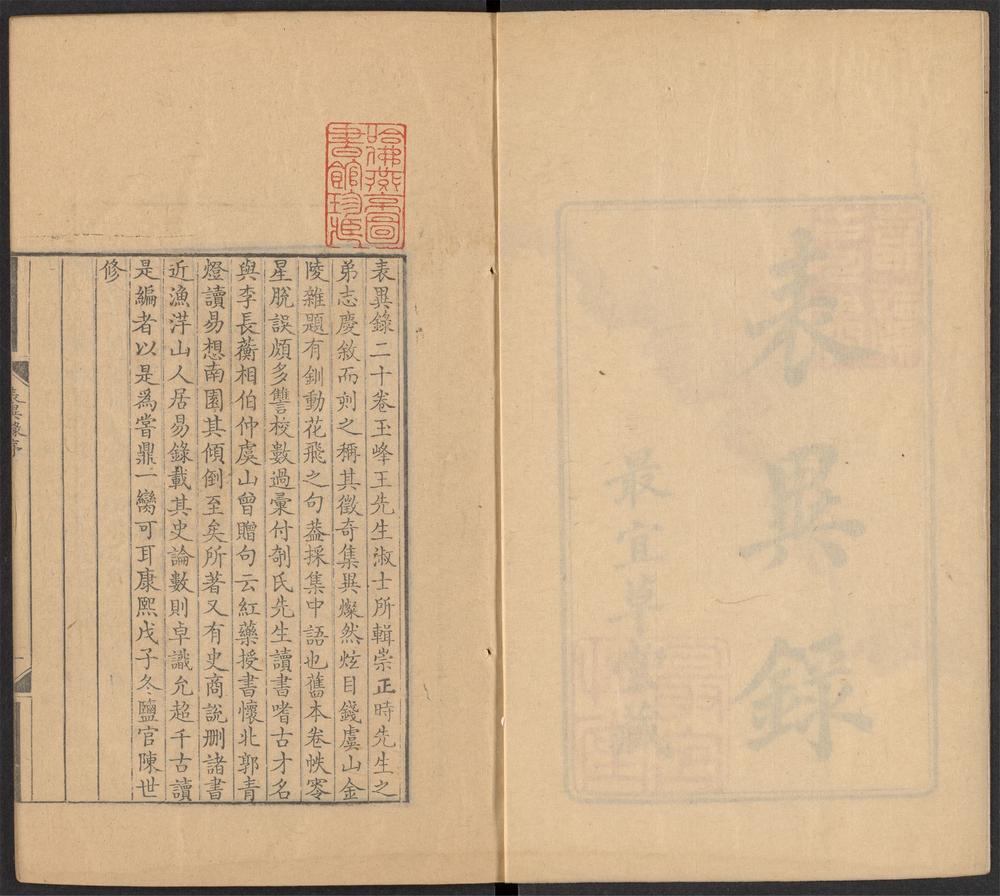 表異錄
最宜草堂藏
哈佛燕京圖
書館珍藏
表異錄二十卷玉峰王先生淑士所輯崇正時先生之
弟志慶敘而刻之稱其徵奇集異燦然炫目錢虞山金
陵雜題有釧動花飛之句葢採集中語也舊本卷帙零
星脫誤頗多讐校數過彙付剞氏先生讀書嗜古才名
與李長蘅相伯仲虞山曾贈句云紅藥授書懷北郭青
燈讀易想南園其傾倒至矣所著又有史商說刪諸書
近漁洋山人居易錄載其史論數則卓識允超千古讀
是編者以是爲嘗鼎一臠可耳康熙戊子冬鹽官陳世
修
表異錄序
一